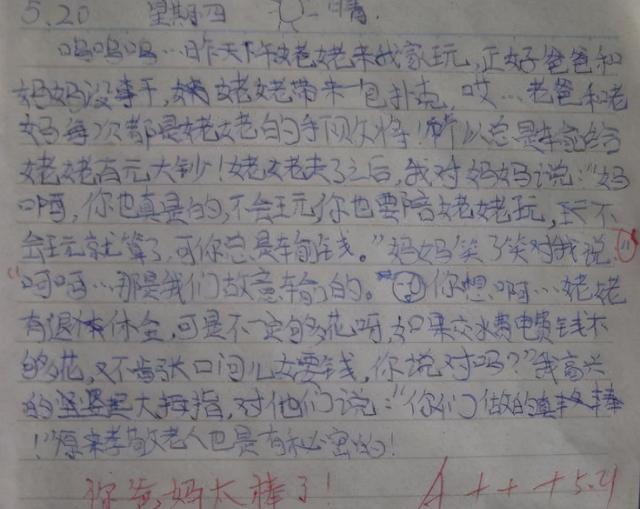 5.20 星期四 晴.
呜呜呜…昨天下午姥姥来我家玩,正好爸爸和
妈妈没事干,姥姥带来一包扑克,哎…老爸和老
妈每次都是姥姥的手下败将!所以总是输给
姥姥百元大钞!姥姥走了之后,我对妈妈说:"妈
啊,你也真是的,不会玩你也要陪姥姥玩,不
会玩就算了,可你总是输钱。"妈妈笑了笑对我说:
"呵呵…那是我们故意输的。你想啊…姥姥
有退休金,可是不一定够花呀,如果交水费电费钱不
够花,又不肯张口问儿女要钱,你说对吗?"我高兴
的竖起大拇指,对他们说:"你们做的真棒
!"原来孝敬老人也是有秘密的!
你爸妈太棒了! A+++5.21